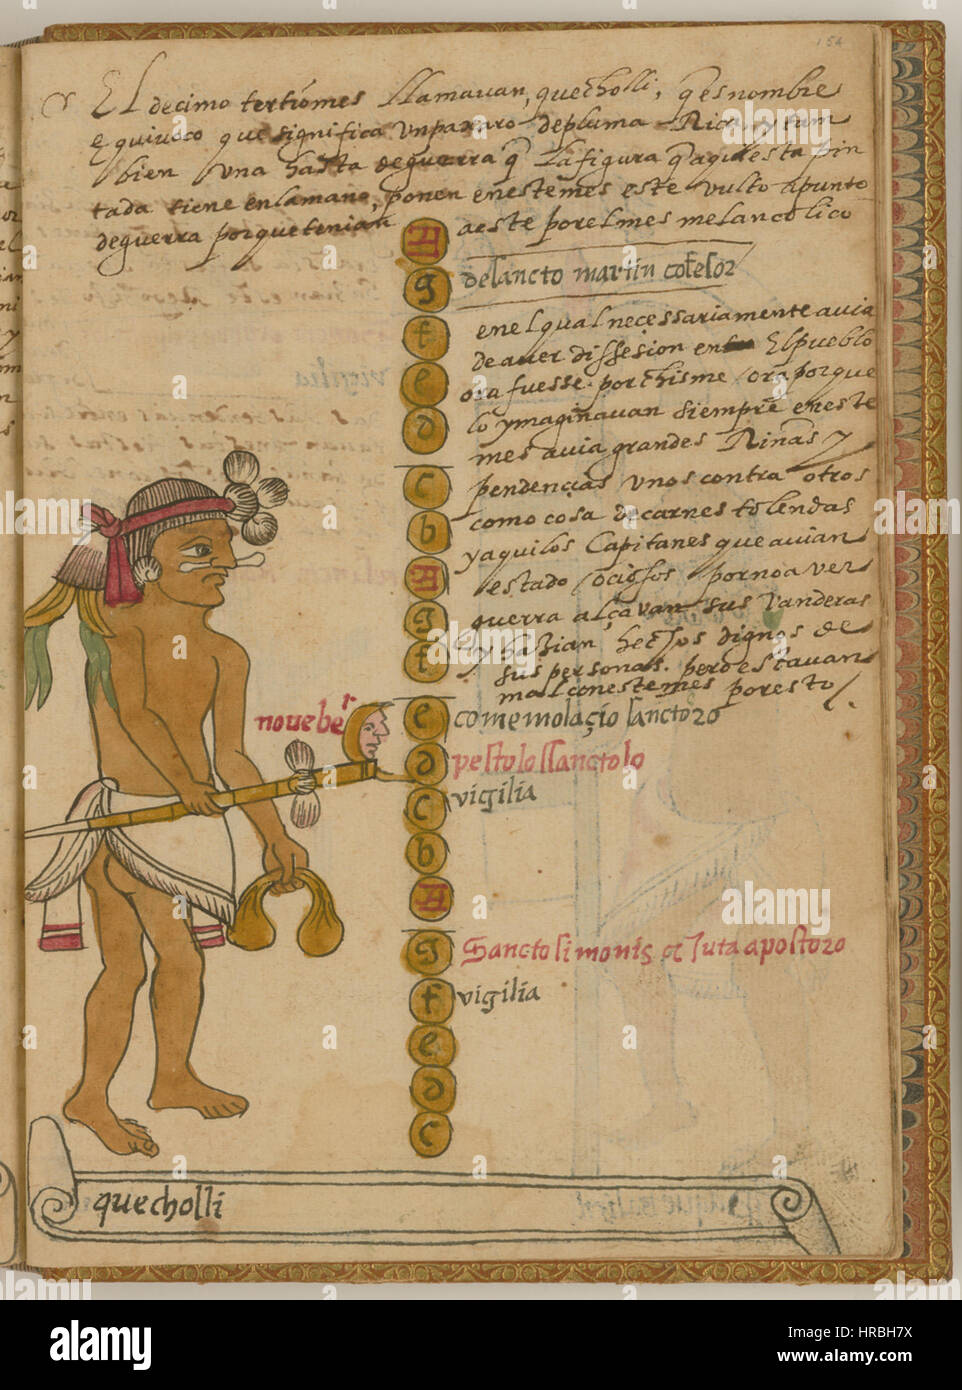 154
El decimo tertio mes llamavan, quecholli, q̃ es nombre
equivoco que significa un paxaro de pluma Rica y tam
bien una hasta de guerra q̃ la figura q̃ aqui esta pin
tada tiene en la mano, ponen en este mes este vulto apunto
de guerra porque tenian
A
a este por el mes melancolico
g
de sancto martin cofesor
f
en el qual necessariamente avia
de aver dissesion en El pueblo
e
ora fuesse por chisme / ora porque
d
lo ymaginavan siempre en este
mes avia grandes Rinas y
c
pendencias unos contra otros
b
como cosa de carnes tolendas
y aquilos Capitanes que avian
A
estado ociosos por no aver
g
guerra alçavan sus vanderas
f
y hazian hechos dignos de
sus personas. pero estavan
mal con este mes por esto /.
noveber
e
comemolaçio sanctoro
d
pestolo sanctolo
c
vigilia
b
A
g
Sancto simonis et Juta apostoro
f
vigilia
e
d
c
quecholli
vigilia
a
alamy
a
alamy
alamy
Image ID: HRBH7X
www.alamy.com